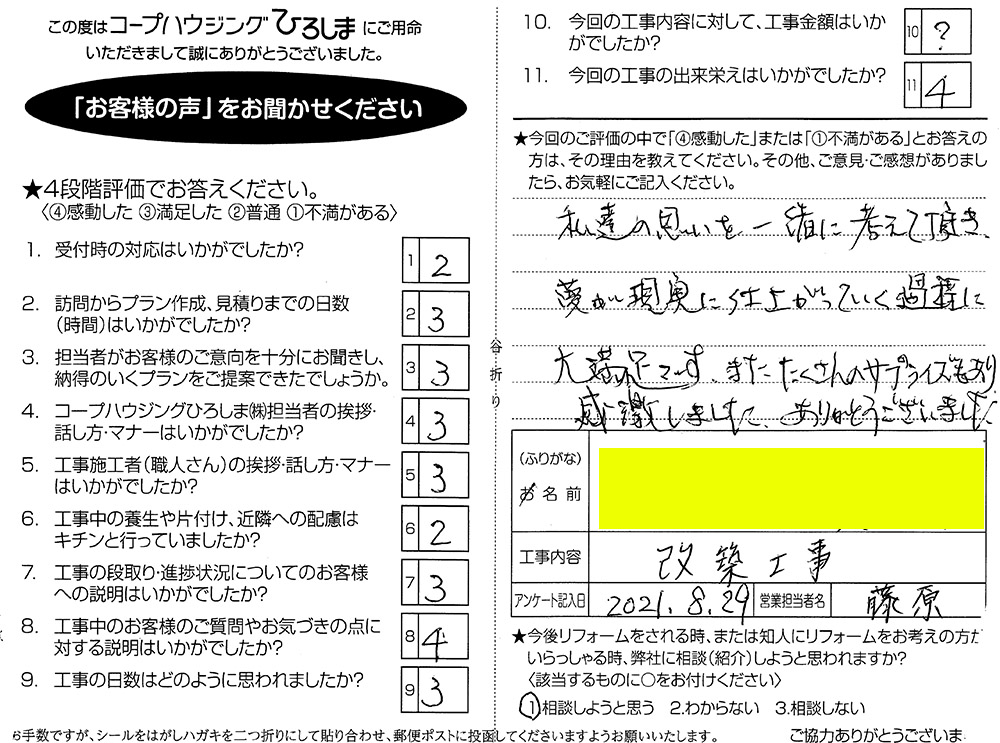 この度はコープハウジングひろしまにご用命
いただきまして誠にありがとうございました。
「お客様の声」をお聞かせください
★4段階評価でお答えください。
〈④感動した ③満足した ②普通 ①不満がある〉
1. 受付時の対応はいかがでしたか?
1 2
2. 訪問からプラン作成、見積りまでの日数
(時間)はいかがでしたか?
2 3
3. 担当者がお客様のご意向を十分にお聞きし、
納得のいくプランをご提案できたでしょうか。
3 3
4. コープハウジングひろしま㈱担当者の挨拶・
話し方・マナーはいかがでしたか?
4 3
5. 工事施工者(職人さん)の挨拶・話し方・マナー
はいかがでしたか?
5 3
6. 工事中の養生や片付け、近隣への配慮は
キチンと行っていましたか?
6 2
7. 工事の段取り・進捗状況についてのお客様
への説明はいかがでしたか?
7 3
8. 工事中のお客様のご質問やお気づきの点に
対する説明はいかがでしたか?
8 4
9. 工事の日数はどのように思われましたか?
9 3
お手数ですが、シールをはがしハガキを二つ折りにして貼り合わせ、郵便ポストに投函してくださいますようお願いいたします。
谷折り
10. 今回の工事内容に対して、工事金額はいか
がでしたか?
10 ?
11. 今回の工事の出来栄えはいかがでしたか?
11 4
★今回のご評価の中で「④感動した」または「①不満がある」とお答えの
方は、その理由を教えてください。その他、ご意見・ご感想がありまし
たら、お気軽にご記入ください。
私達の思いを一緒に考えて頂き、
夢が現実に仕上がっていく過程に
大満足です。またたくさんのサプライズもあり
感激しました、ありがとうございました
(ふりがな)
お名前
工事内容 改築工事
アンケート記入日 2021.8.29 営業担当者名 藤原
★今後リフォームをされる時、または知人にリフォームをお考えの方だ
いらっしゃる時、弊社に相談(紹介)しようと思われますか?
〈該当するものに○をお付けください〉
1.相談しようと思う 2.わからない 3.相談しない
ご協力ありがとうございま